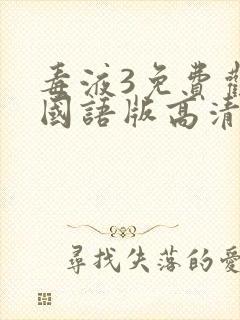 毒液3免費
國語版高清
尋找失落的愛